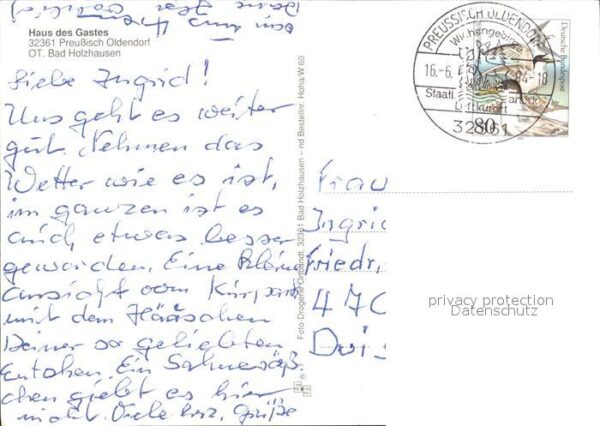 Haus des Gastes
32361 Preußisch Oldendorf
OT. Bad Holzhausen
Liebe Ingrid!
Uns geht es weiter
gut. Nehmen das
Wetter wie es ist,
im ganzen ist es
auch etwas besser
geworden. Eine kleine
Ansicht vom Kurpark
mit dem Häuschen
Deiner so geliebten
Entchen. Ein Schwes
chen giebt es hier
nicht. Viele herz. Grüße
Foto-Drogerie Ortbandt, 32361 Bad Holzhausen – nd Bestellnr. Hoha/W 60
PREUSSISCH OLDENDORF
Wiehengebirge
16.-6. 94-18
Staatl. 
Luftkurort
32361
Deutsche Bundespost
80
Frau
Ingrid
Friedr.
470
Duis
privacy protection
Datenschutz